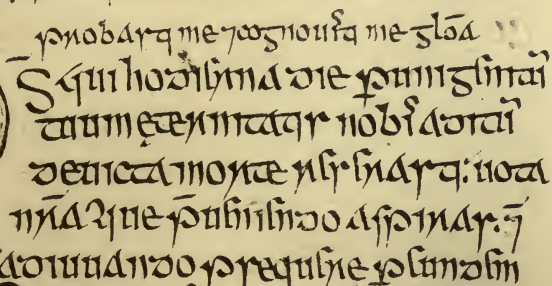 probasti me ⁊cognouisti me glōa
S̄ qui hodierna die ꝑunigenitū
tuum ęternitatis nobī aditū
deuicta morte reserasti: uota
nr̄a que p̄ueniendo aspiras. ē
adiuuando prequere ꝑeundem